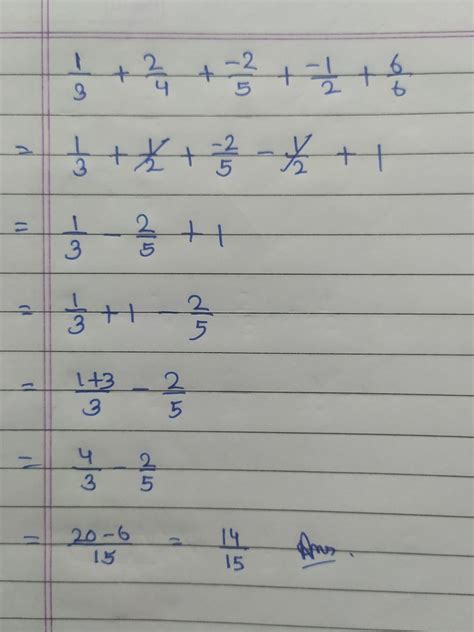 1/3 + 2/4 + -2/5 + -1/2 + 6/6
= 1/3 + 1/2 + -2/5 - 1/2 + 1
= 1/3 - 2/5 + 1
= 1/3 + 1 - 2/5
= 1+3/3 - 2/5
= 4/3 - 2/5
= 20-6/15 = 14/15 Ans.